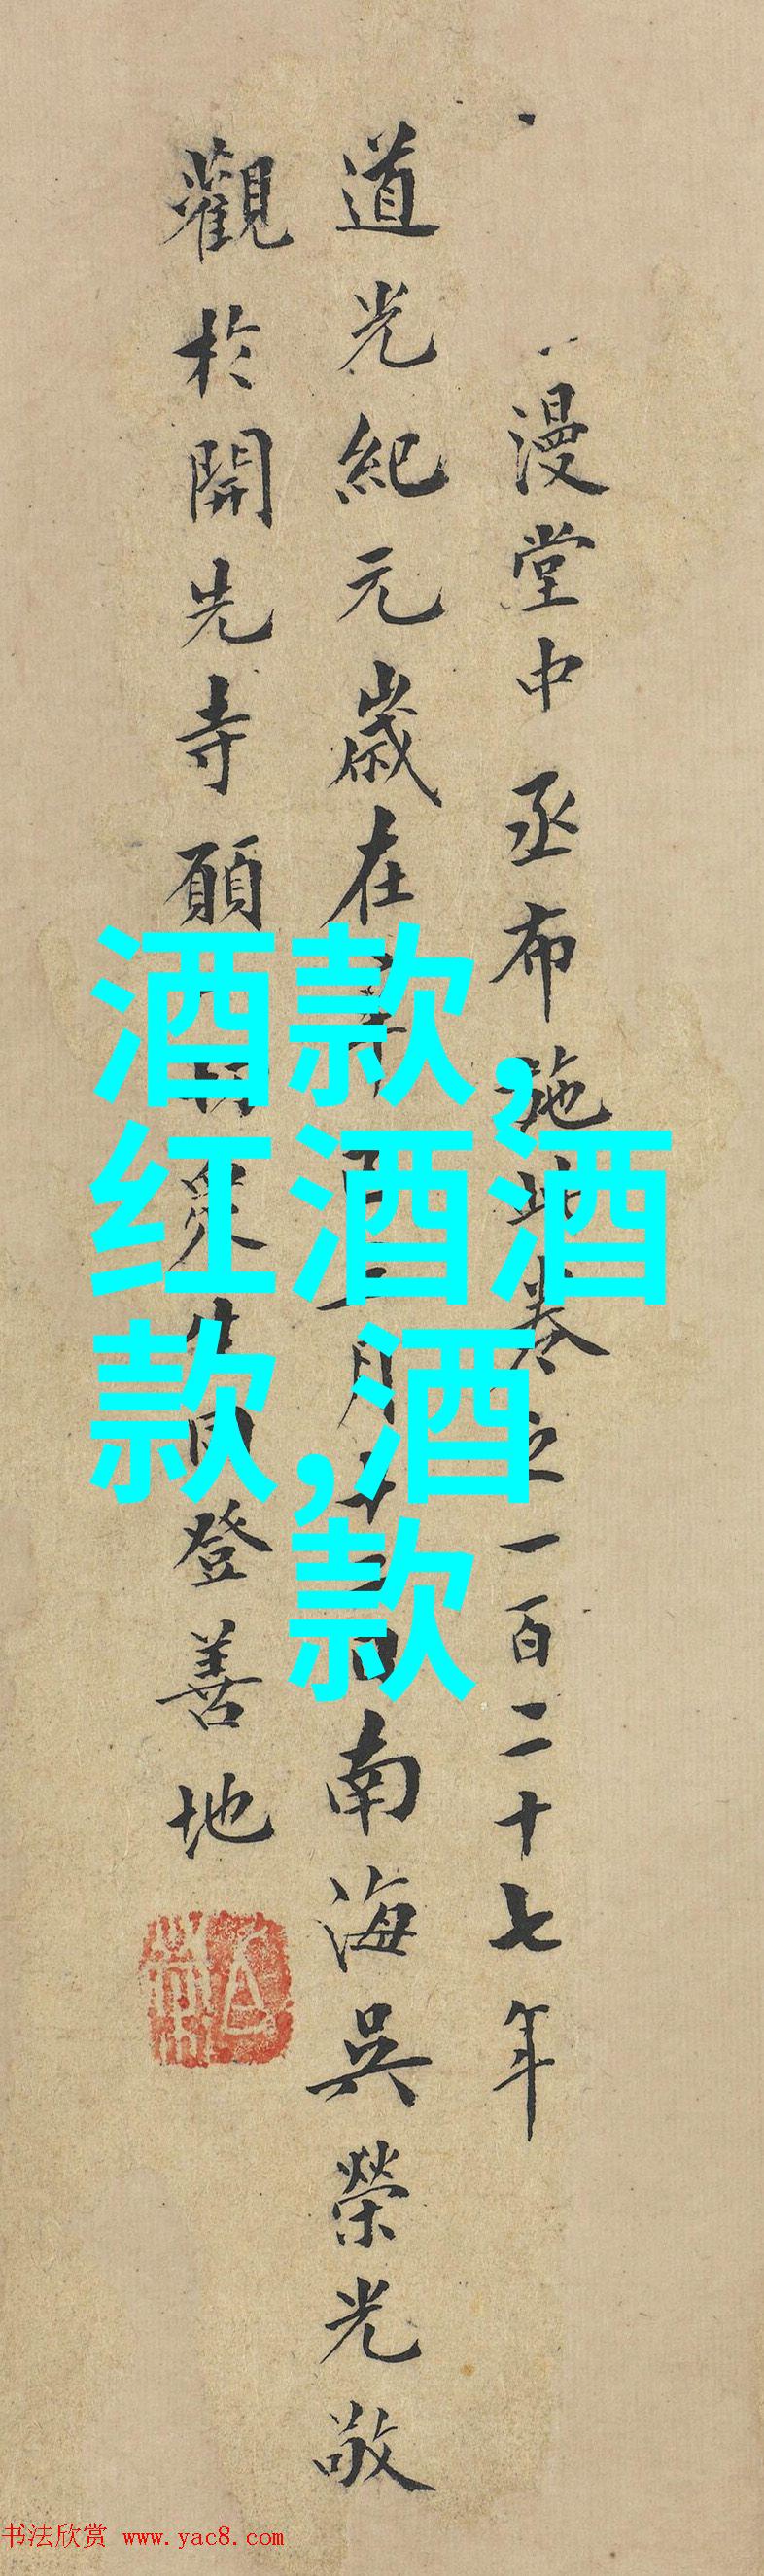 漫堂中丞布施此卷之一百二十七年
道光紀元歲在月南海吳榮光敬
觀於開先寺願眾生同登善地
酒款,
红酒酒
款,酒
款
书法欣赏 www.yac8.com